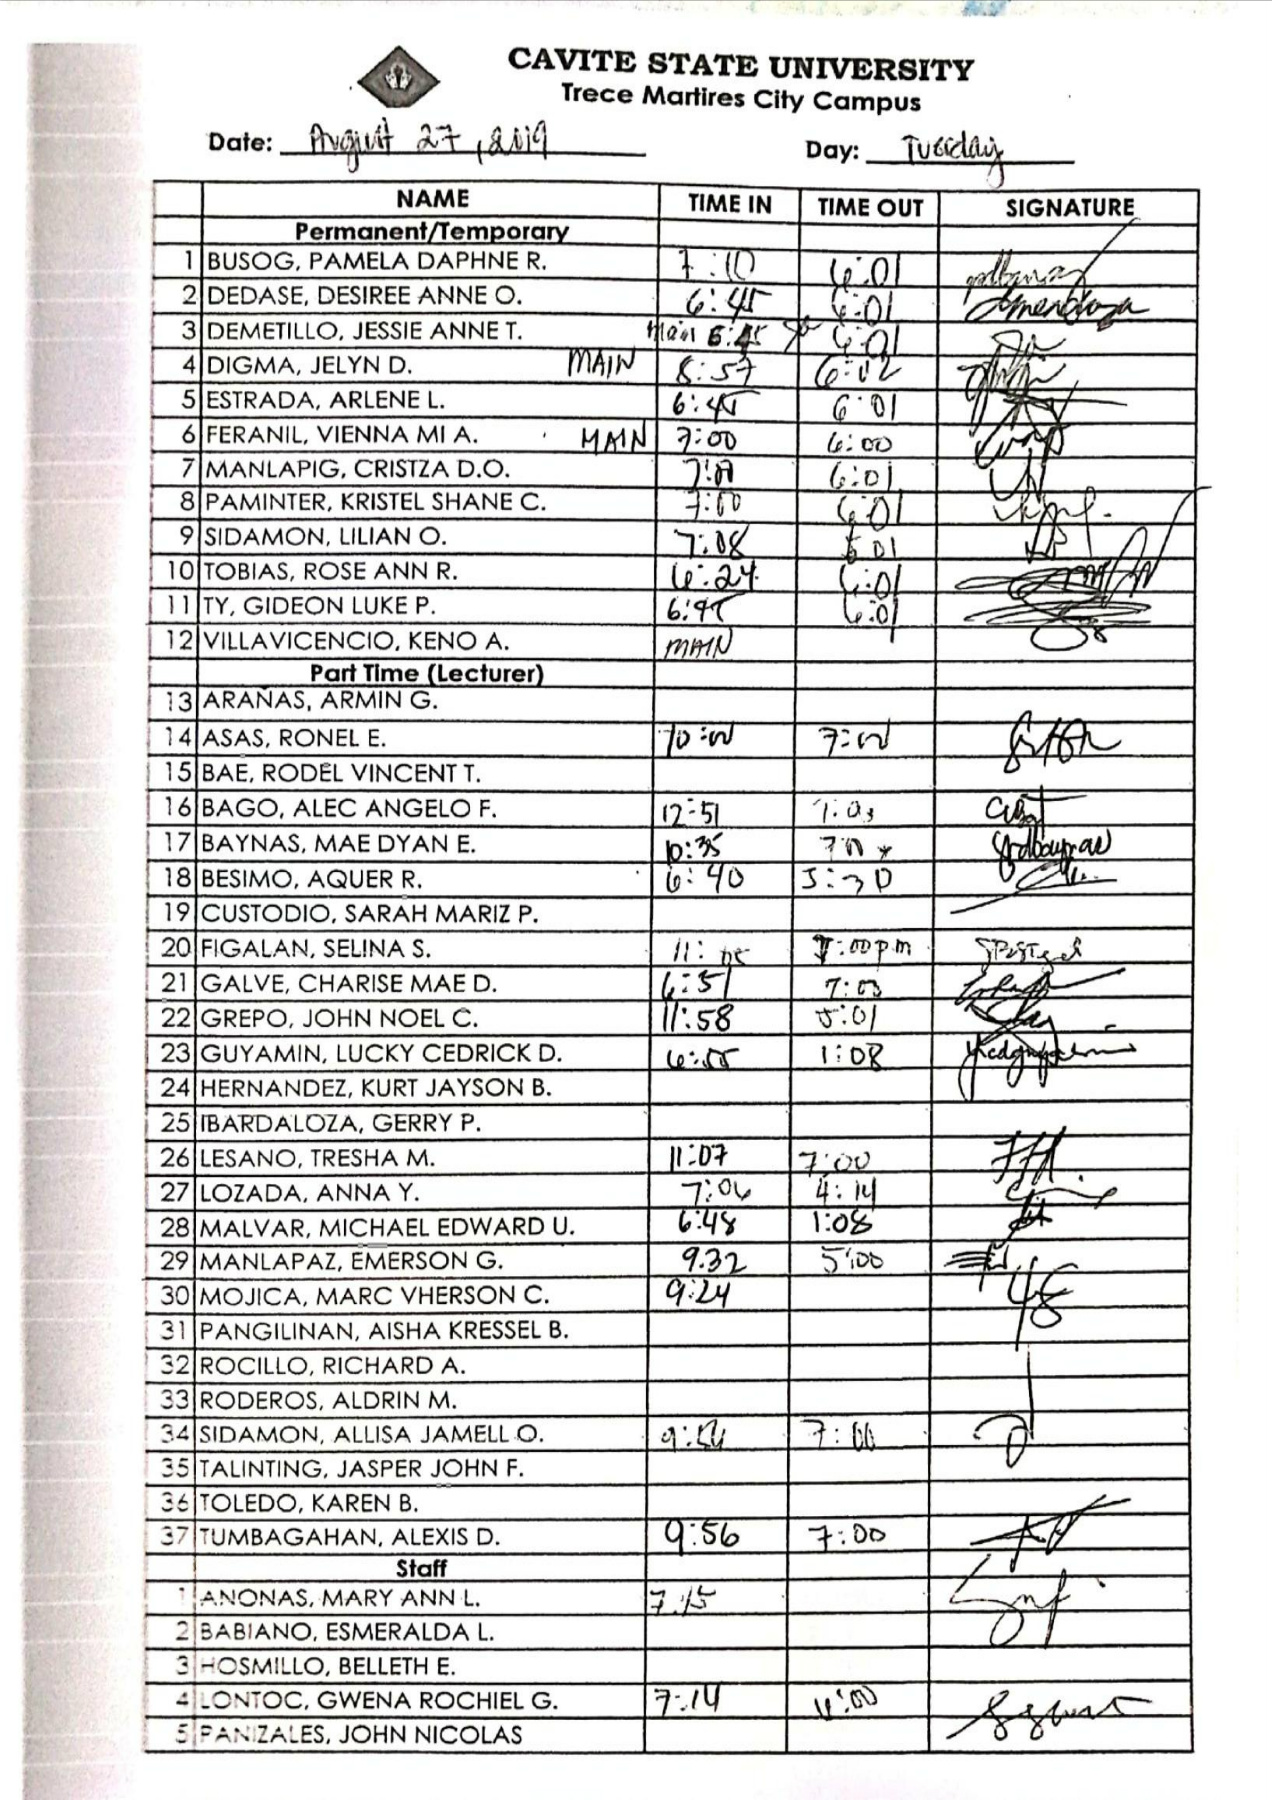 CAVITE STATE UNIVERSITY
Trece Martires City Campus
Date: August 27, 2019 Day: Tuesday
NAME TIME IN TIME OUT SIGNATURE
Permanent/Temporary
1 BUSOG, PAMELA DAPHNE R. 7:10 6:01
2 DEDASE, DESIREE ANNE O. 6:45 6:01
3 DEMETILLO, JESSIE ANNE T. main 6:45 6:01
4 DIGMA, JELYN D. MAIN 8:57 6:02
5 ESTRADA, ARLENE L. 6:45 6:01
6 FERANIL, VIENNA MI A. MAIN 7:00 6:00
7 MANLAPIG, CRISTZA D.O. 6:01
8 PAMINTER, KRISTEL SHANE C. 7:00 6:01
9 SIDAMON, LILIAN O. 7:08 6:01
10 TOBIAS, ROSE ANN R. 6:24 6:01
11 TY, GIDEON LUKE P. 6:45 6:01
12 VILLAVICENCIO, KENO A. MAIN
Part Time (Lecturer)
13 ARAÑAS, ARMIN G.
14 ASAS, RONEL E. 10:00 7:00
15 BAE, RODEL VINCENT T.
16 BAGO, ALEC ANGELO F. 12:51
17 BAYNAS, MAE DYAN E. 10:35
18 BESIMO, AQUER R. 6:40 5:30
19 CUSTODIO, SARAH MARIZ P.
20 FIGALAN, SELINA S. 7:00pm
21 GALVE, CHARISE MAE D. 6:51 7:03
22 GREPO, JOHN NOEL C. 11:58 5:01
23 GUYAMIN, LUCKY CEDRICK D. 6:55 1:08
24 HERNANDEZ, KURT JAYSON B.
25 IBARDALOZA, GERRY P.
26 LESANO, TRESHA M. 11:07 7:00
27 LOZADA, ANNA Y. 7:06 4:14
28 MALVAR, MICHAEL EDWARD U. 6:48 1:08
29 MANLAPAZ, EMERSON G. 9:32 5:00
30 MOJICA, MARC VHERSON C. 9:24
31 PANGILINAN, AISHA KRESSEL B.
32 ROCILLO, RICHARD A.
33 RODEROS, ALDRIN M.
34 SIDAMON, ALLISA JAMELL O. 7:00
35 TALINTING, JASPER JOHN F.
36 TOLEDO, KAREN B.
37 TUMBAGAHAN, ALEXIS D. 9:56 7:00
Staff
1 ANONAS, MARY ANN L. 7:15
2 BABIANO, ESMERALDA L.
3 HOSMILLO, BELLETH E.
4 LONTOC, GWENA ROCHIEL G. 7:14
5 PANIZALES, JOHN NICOLAS